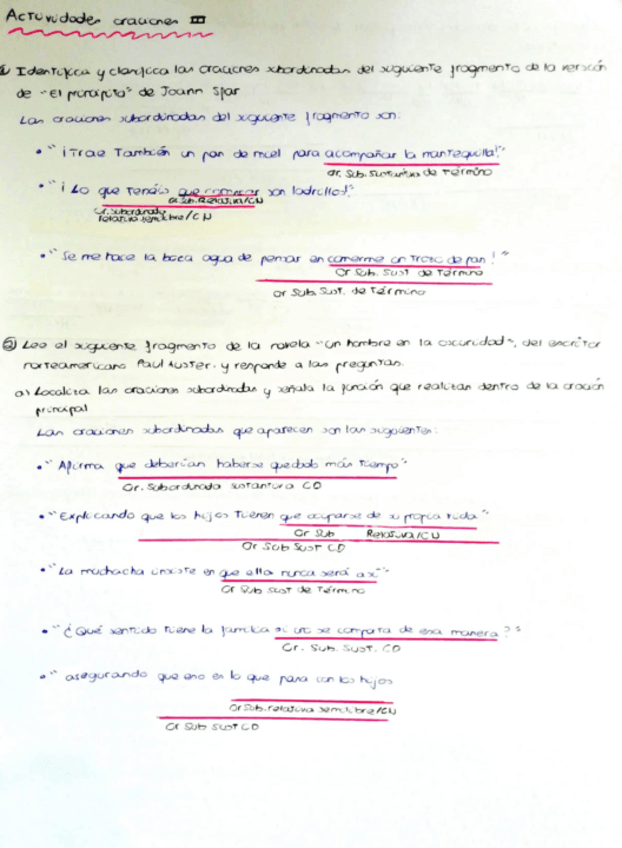 Actividades oraciones III
① Identifica y clasifica las oraciones subordinadas del siguiente fragmento de la versión
de "El principito" de Joann Sfar
Las oraciones subordinadas del siguiente fragmento son:
• "¡Trae También un pan de miel para acompañar la mantequilla!"
Or. Sub. Sustantiva de Término
• "¡Lo que tenéis que comer son ladrillos!"
Or. Sub. Relativa/CN
Or. subordinada
relativa semilibre/CN
• "Se me hace la boca agua de pensar en comerme un trozo de pan!"
Or Sub. Sust de Término
Or Sub. Sust. de Término
② Lee el siguiente fragmento de la novela "Un hombre en la oscuridad", del escritor
norteamericano Paul Auster. y responde a las preguntas.
a) Localiza las oraciones subordinadas y señala la función que realizan dentro de la oración
principal
Las oraciones subordinadas que aparecen son las siguientes:
• "Afirma que deberían haberse quedado más tiempo"
Or. Subordinada sustantiva CD
• "Explicando que los hijos tienen que ocuparse de su propia vida"
Or Sub Relativa/CN
Or Sub Sust CD
• "La muchacha insiste en que ella nunca será así"
Or Sub Sust de Término
• "¿Qué sentido tiene la familia si uno se comporta de esa manera?"
Or. Sub. Sust. CD
• "asegurando que eso es lo que pasa con los hijos
Or Sub. relativa semilibre/CN
Or Sub Sust CD